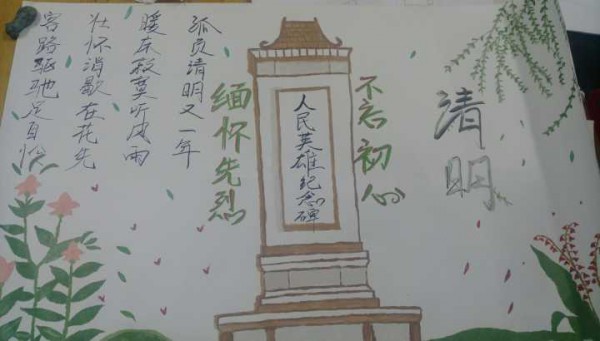 清明
不忘初心
人民英雄纪念碑
缅怀先烈
孤负清明又一年
暖听风雨
壮怀消歇在花先
客路驱驰足自怜